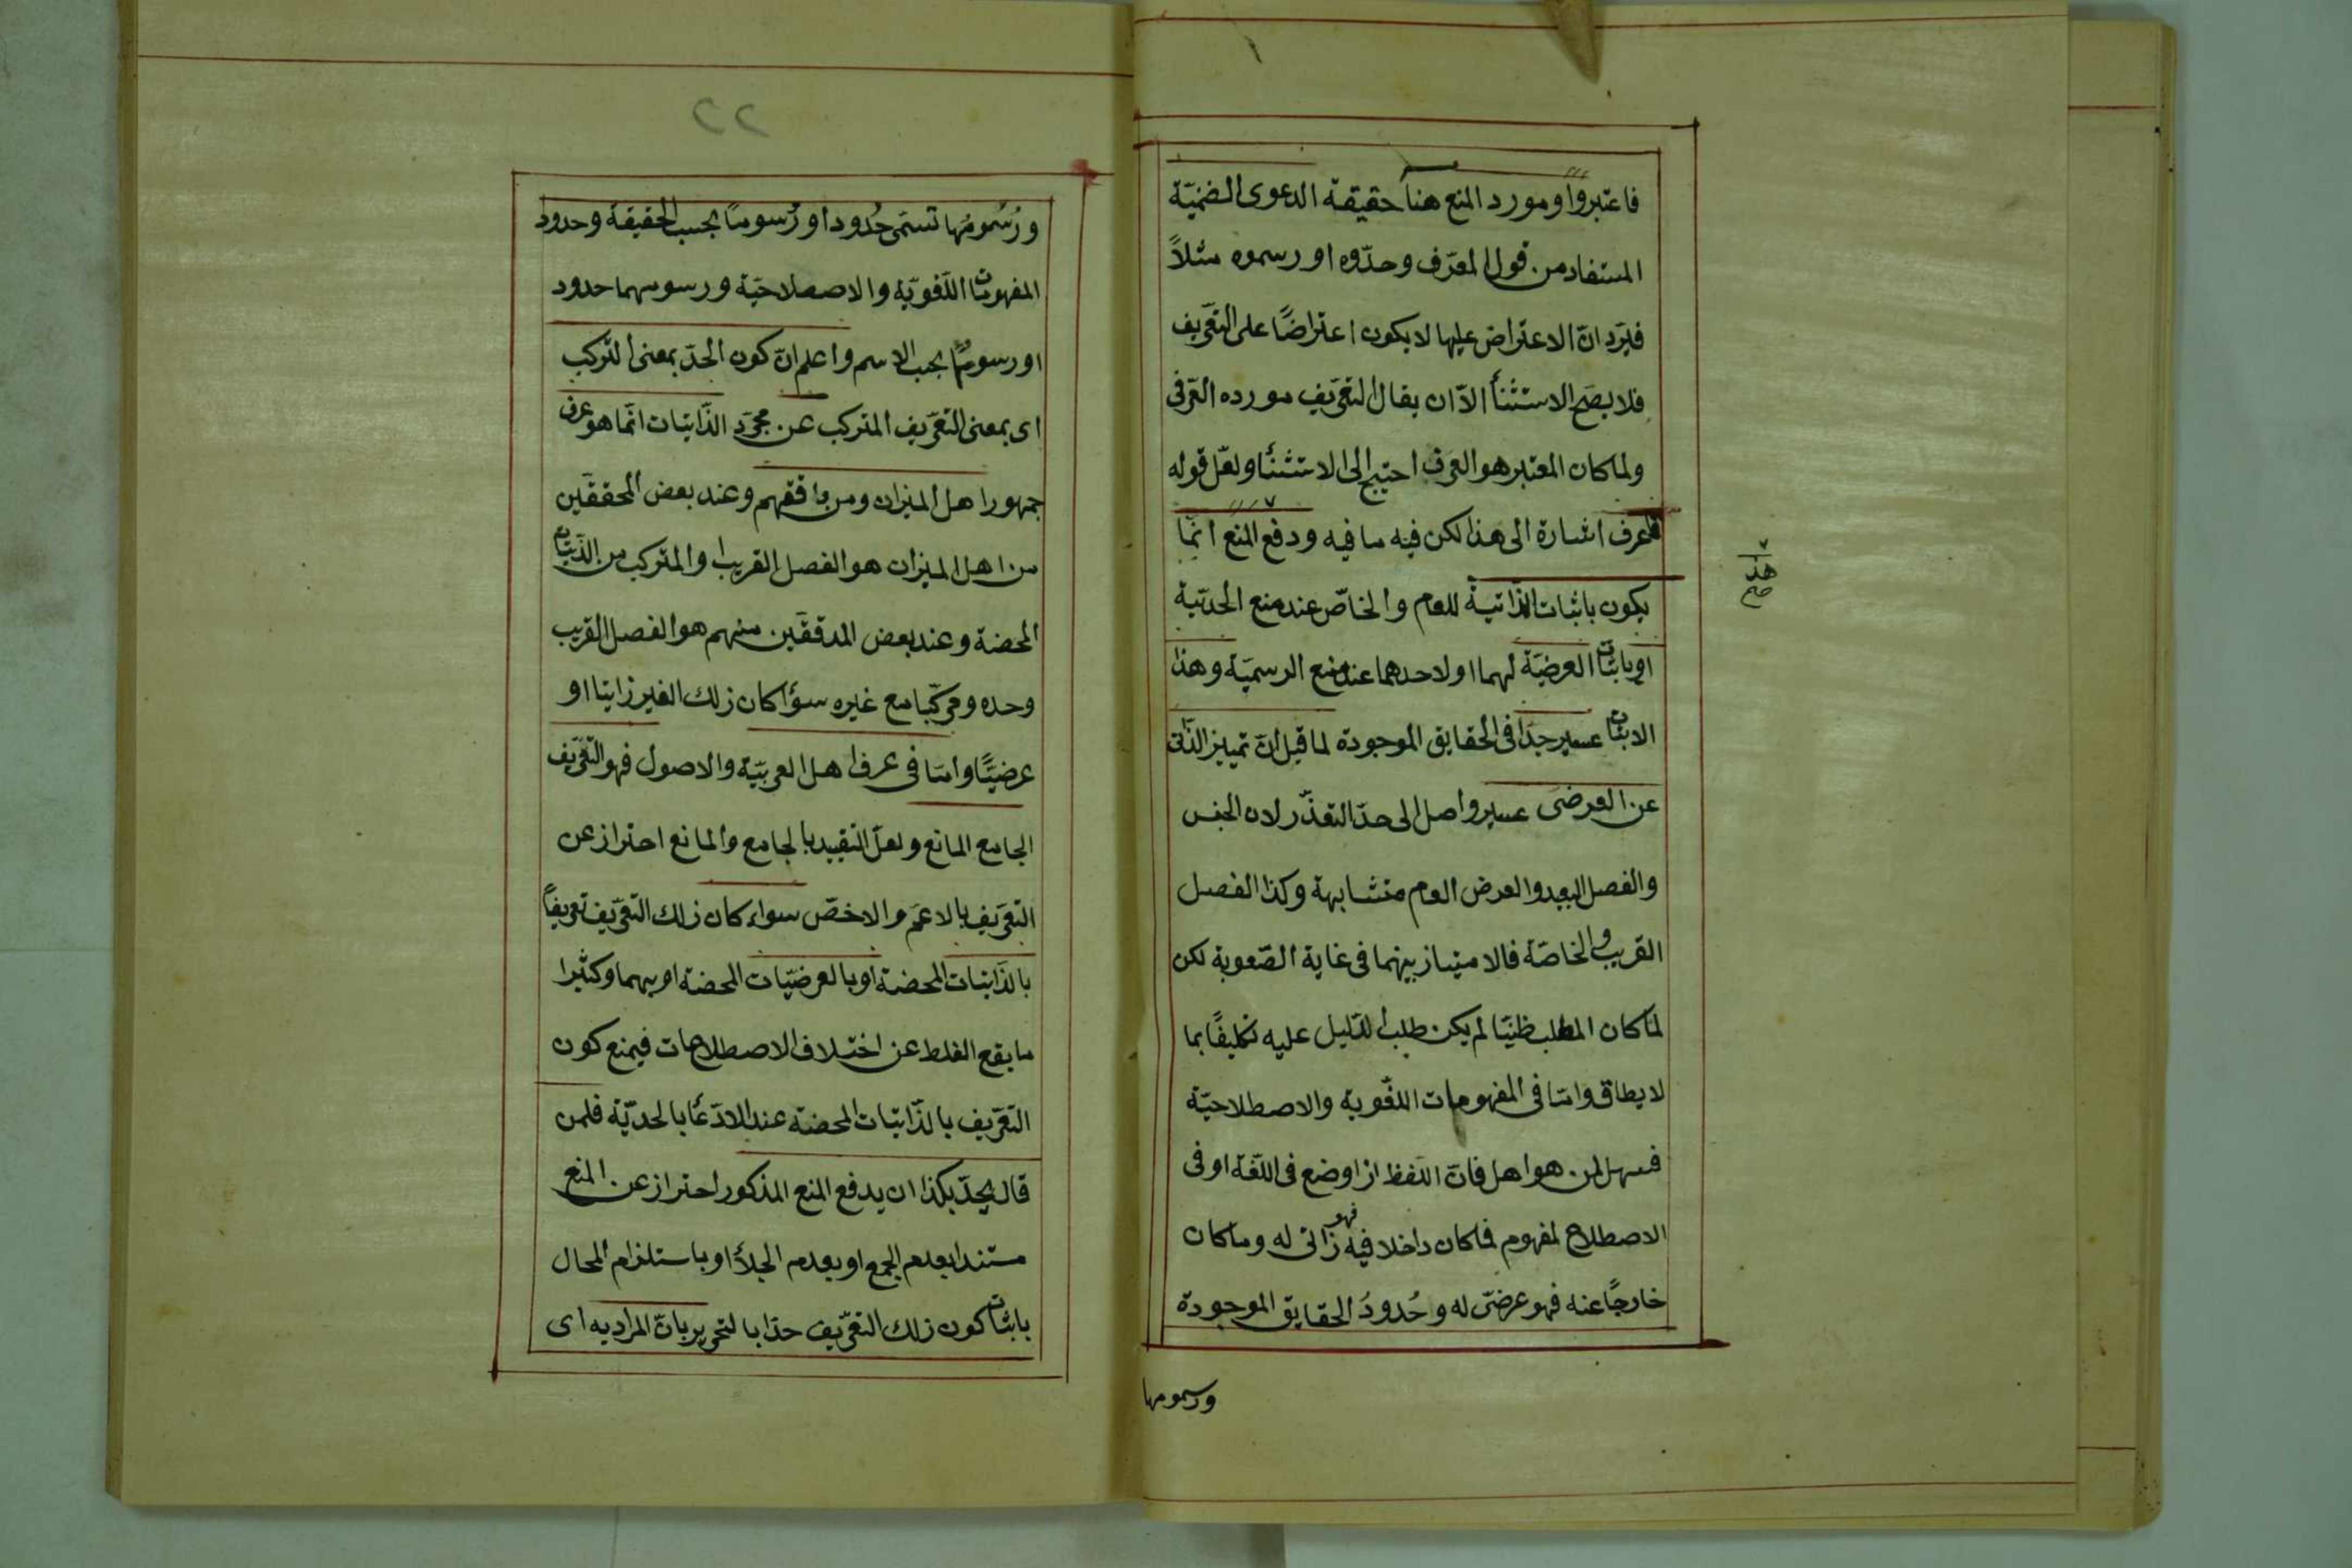 فاعتبروا ومورد المنع هنا حقيقة الدعوى الضمنيّة
المستفاد من قول المعرّف وحدّوه او رسموه مثلاً
فيَرد انّ الاعتراض عليها لا يكون اعتراضًا على التعريف
فلا يصح الاستثنأ الاّ ان يقال التعريف مورده العرفى
ولما كان المعتبر هو العرف احتيج الى الاستثنأ ولعلّ قوله
فاعرف اشارة الى هذا لكن فيه ما فيه ودفع المنع انّما
يكون باثبات الذّاتية للعام والخاصّ عند منع الحدّيّة
او باثبات العرضيّة لهما او لاحدهما عند منع الرسميّة وهذا
الاثبات عسير جدّا فى الحقايق الموجودة لما قيل انّ تمييز الذّاتى
عن العرضى عسير واصل الى حدّ التعذّر لان الجنس
والفصل البعيد والعرض العام متشابهة وكذا الفصل
القريب والخاصّة فالامتياز بينهما فى غاية الصّعوبة لكن
لمّا كان المطلب ظنيّا لم يكن طلب الدّليل عليه تكليفًا بما
لا يطاق وامّا فى المفهومات اللّغوية والاصطلاحيّة
فسهل لمن هو اهل فانّ اللّفظ اذا وضع فى اللّغة او فى
الاصطلاح لمفهوم فما كان داخلا فيه فهو ذاتى له وما كان
خارجًا عنه فهو عرضىّ له وحُدودُ الحقايق الموجودة
ورسومها
هذا
صح
٢٢
ورُسُومُها تسمّى حُدودا ورُسومًا بحسب الحقيقة وحدود
المفهومات اللّغويّة والاصطلاحيّة ورسومهما حدود
او رسومًا بحسب الاسم واعلم انّ كون الحدّ بمعنى التركب
اى بمعنى التعريف المتركب عن مجرّد الذّاتيّات انّما هو عرف
جمهور اهل الميزان ومن وافقهم وعند بعض المحققين
من اهل الميزان هو الفصل القريب او المتركب من الذّاتيّات
المحضة وعند بعض المدققين منهم هو الفصل القريب
وحده ومركّبا مع غيره سوأ كان ذلك الغير ذاتيا او
عرضيًّا وامّا فى عرف اهل العربيّة والاصول فهو التعريف
الجامع المانع ولعلّ التقييد بالجامع والمانع احتراز عن
التعريف بالاعمّ والاخصّ سواء كان ذلك التعريف تعريفاً
بالذّاتيّات المحضة او بالعرضيّات المحضة او بهما وكثيرا
ما يقع الغلط عن اختلاف الاصطلاحات فيمنع كون
التعريف بالذّاتيّات المحضة عند الادّعأ بالحدّيّة فلمن
قال يحدّ بكذا ان يدفع المنع المذكور احتراز عن المنع
مستندا بعدم الجمع او بعدم الجلأ او باستلزام المحال
باثبات كون ذلك التعريف حدّا بالتحرير بانّ المراد به اى